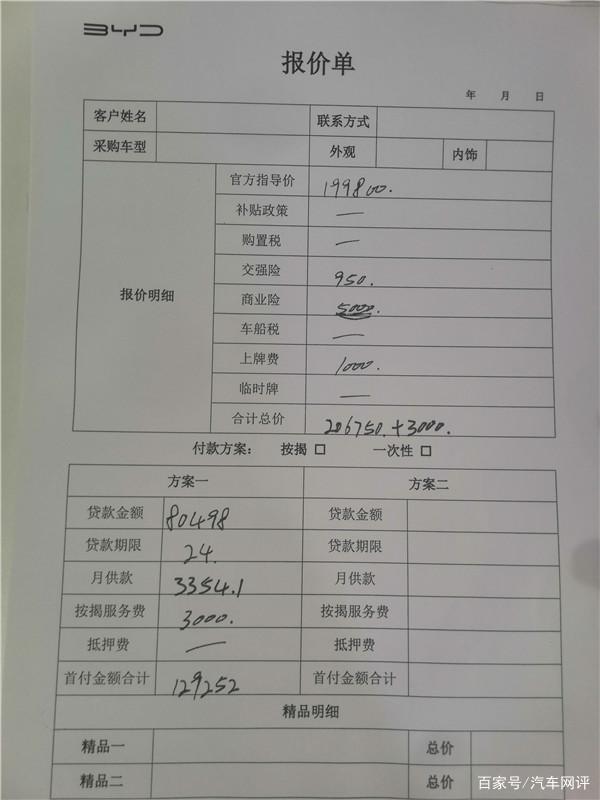 BYD
报价单
年 月 日
客户姓名 联系方式
采购车型 外观 内饰
报价明细
官方指导价 199800.
补贴政策 —
购置税 —
交强险 950.
商业险 5000.
车船税 —
上牌费 1000.
临时牌 —
合计总价 206750.+3000.
付款方案： 按揭 □ 一次性 □
方案一 方案二
贷款金额 80498 贷款金额
贷款期限 24. 贷款期限
月供款 3354.1 月供款
按揭服务费 3000. 按揭服务费
抵押费 — 抵押费
首付金额合计 129252 首付金额合计
精品明细
精品一 总价
精品二 总价
百家号/汽车网评